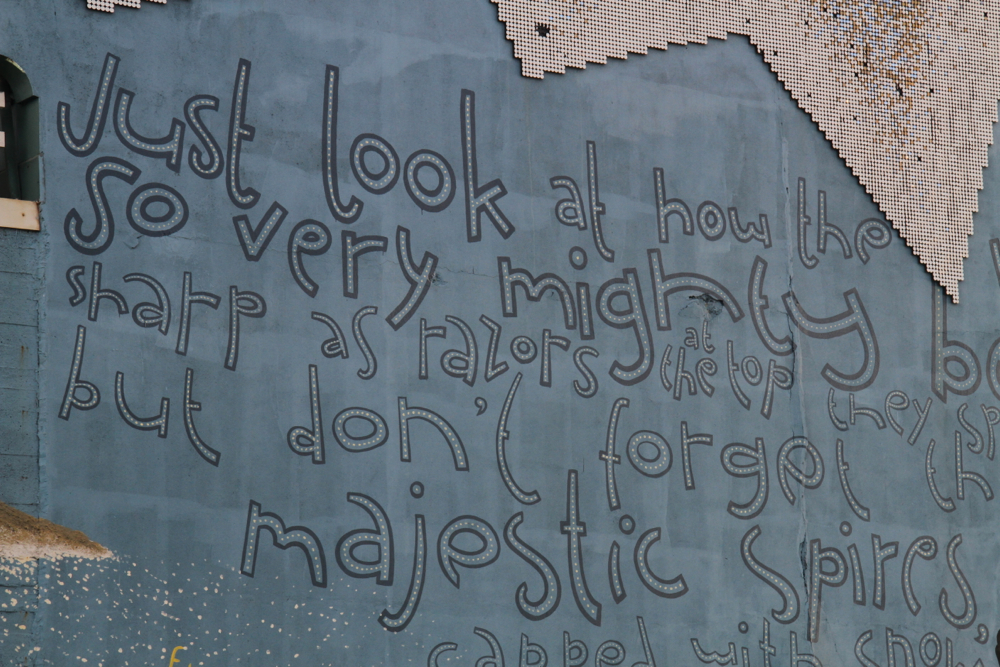 Just look at how the
So very mighty be
sharp as razors at the top they sp
but don't forget th
majestic spires
capped with snow,